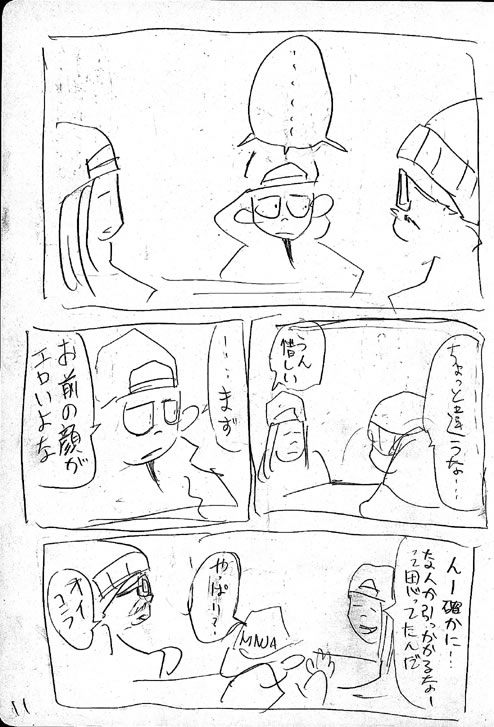 ・・・・・・
ちょっと違うな…
うん
惜しい
…まず
お前の顔が
エロいよな
んー確かに…
な人か引っかかるなー
って思ってたんだ
やっぱり?
MNJA
オイ
コラ
11